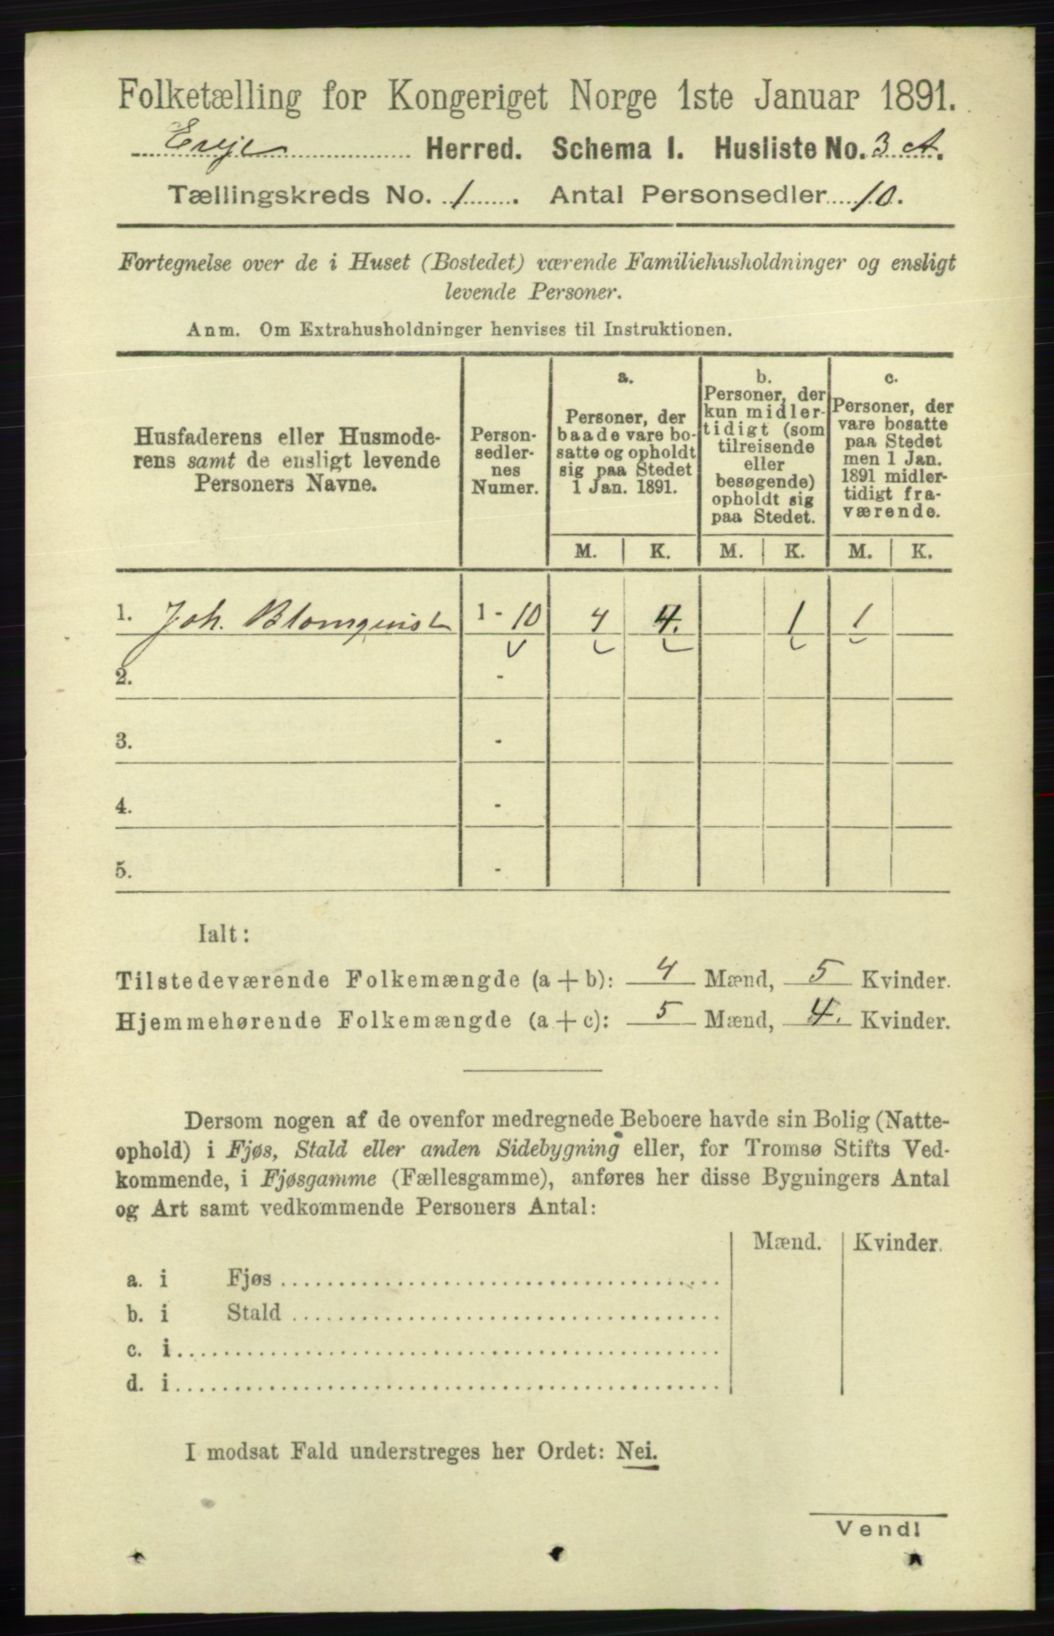 Folketælling for Kongeriget Norge 1ste Januar 1891.
Evje Herred. Schema I. Husliste No. 3 A.
Tællingskreds No. 1. Antal Personsedler 10.
Fortegnelse over de i Huset (Bostedet) værende Familiehusholdninger og ensligt
levende Personer.
Anm. Om Extrahusholdninger henvises til Instruktionen.
Husfaderens eller Husmode-
rens samt de ensligt levende
Personers Navne.
Person-
sedler-
nes
Numer.
a.
Personer, der
baade vare bo-
satte og opholdt
sig paa Stedet
1 Jan. 1891.
b.
Personer, der
kun midler-
tidigt (som
tilreisende
eller
besøgende)
opholdt sig
paa Stedet.
c.
Personer, der
vare bosatte
paa Stedet
men 1 Jan.
1891 midler-
tidigt fra-
værende.
M. K. M. K. M. K.
1. Joh. Blomquist 1 - 10 4 4. 1 1
2. -
3. -
4. -
5. -
Ialt:
Tilstedeværende Folkemængde (a + b): 4 Mænd, 5 Kvinder.
Hjemmehørende Folkemængde (a + c): 5 Mænd, 4. Kvinder.
Dersom nogen af de ovenfor medregnede Beboere havde sin Bolig (Natte-
ophold) i Fjøs, Stald eller anden Sidebygning eller, for Tromsø Stifts Ved-
kommende, i Fjøsgamme (Fællesgamme), anføres her disse Bygningers Antal
og Art samt vedkommende Personers Antal:
Mænd. Kvinder.
a. i Fjøs
b. i Stald
c. i
d. i
I modsat Fald understreges her Ordet: Nei.
Vend!